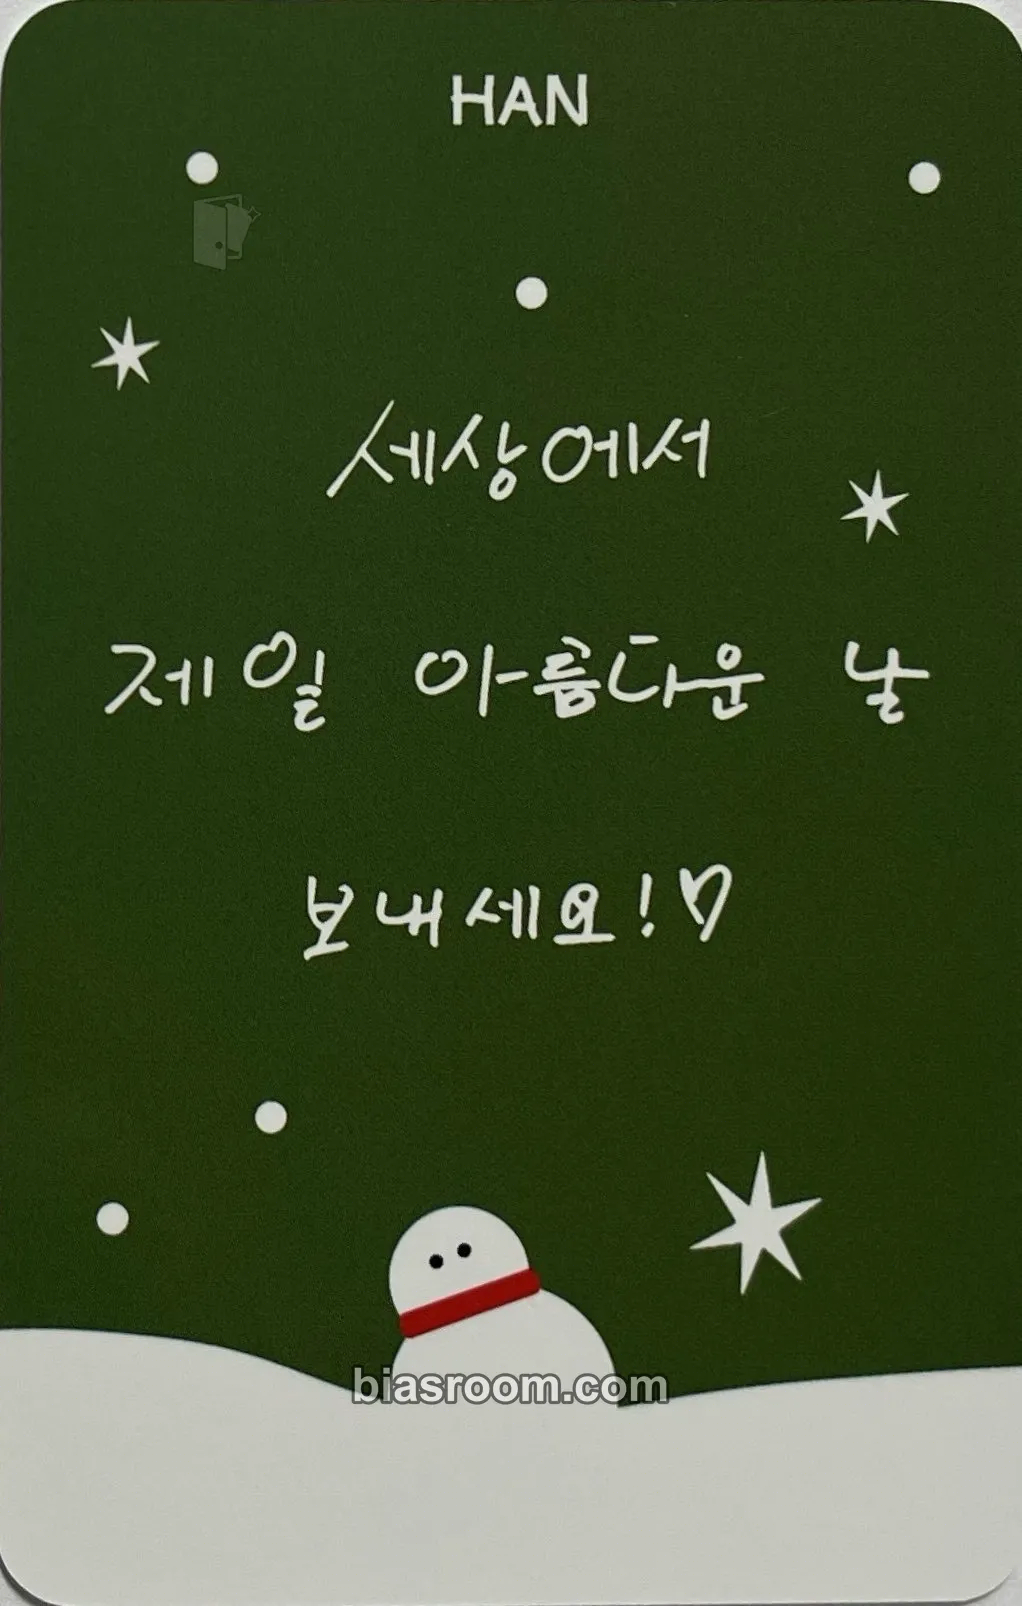 HAN
세상에서
제일 아름다운 날
보내세요!♡
biasroom.com